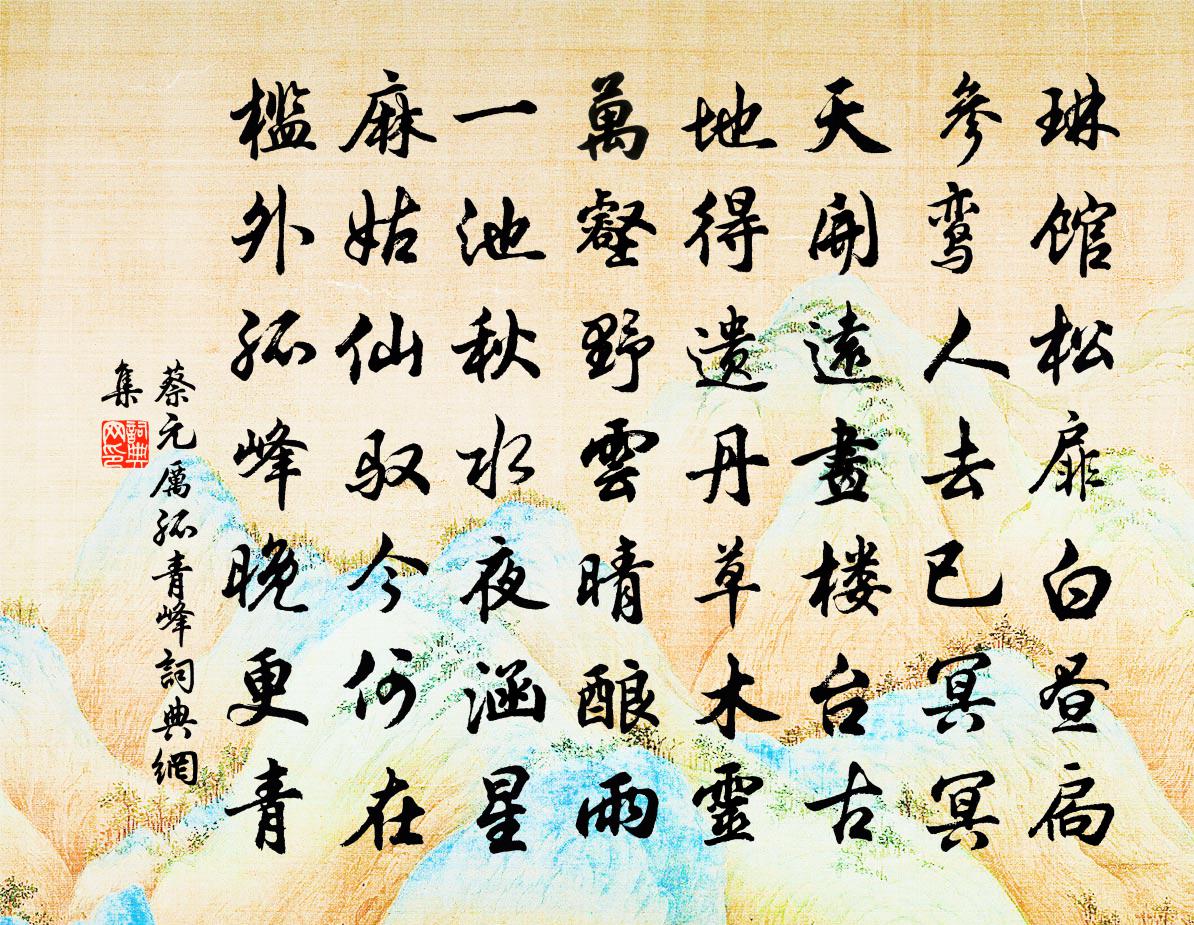 琳馆松扉白昼扃
參鸾人去已冥冥
天開遠畫楼台古
地得遗丹草木靈
萬壑野雲晴酿雨
一池秋水夜涵星
麻姑仙驭今何在
槛外孤峰晚更青
蔡元厲孤青峰詞典網
集
詞典網印